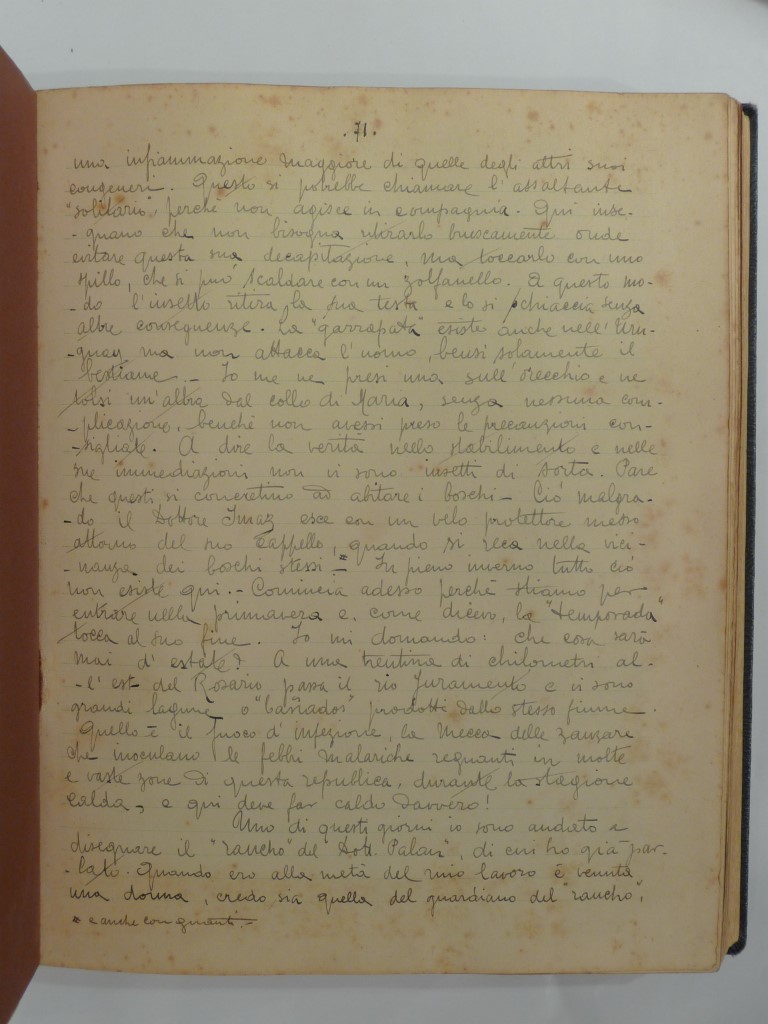 .71.
una infiammazione maggiore di quelle degli altri suoi
congeneri. Questo si potrebbe chiamare l'assaltante
"solitario", perchè non agisce in compagnia. Qui inse-
-gnano che non bisogna ritirarlo bruscamente onde
evitare questa sua decapitazione, ma toccarlo con uno
spillo, che si può scaldare con un zolfanello. A questo mo-
-do l'insetto ritira la sua testa e lo si schiaccia senza
altre conseguenze. La "garrapata" esiste anche nell'Uru-
-guay ma non attacca l'uomo, bensì solamente il
bestiame. - Io me ne presi una sull'orecchio e ne
tolsi un'altra dal collo di Maria, senza nessuna com-
-plicazione, benchè non avessi preso le precauzioni con-
-sigliate. A dire la verità nello stabilimento e nelle
sue immediazioni non vi sono insetti di sorta. Pare
che questi si concretino ad abitare i boschi - Ciò malgra-
-do il Dottore Imaz esce con un velo protettore messo
attorno del suo cappello, quando si reca nella vici-
-nanza dei boschi stessi = In pieno inverno tutto ciò
non esiste qui. - Comincia adesso perchè stiamo per
entrare nella primavera e, come dicevo, la "temporada"
tocca al suo fine. Io mi domando: che cosa sarà
mai d'estate? A una trentina di chilometri al-
-l'est del Rosario passa il rio Juramento e vi sono
grandi lagune o "bañados" prodotti dallo stesso fiume.
Quello è il fuoco d'infezione, la mecca delle zanzare
che inoculano le febbri malariche regnanti in molte
e vaste zone di questa republica, durante la stagione
calda, e qui deve far caldo davvero!
Uno di questi giorni io sono andato a
disegnare il "rancho" del Dott. Palau, di cui ho già par-
-lato. Quando ero alla metà del mio lavoro è venuta
una donna, credo sia quella del guardiano del "rancho",
* e anche con guanti. -